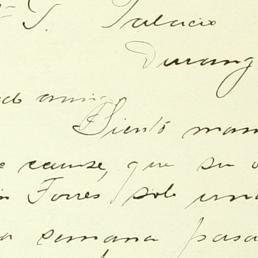 T. Palacio
Durang
Siento man
causa, que su
Torres solo una
semana pasa